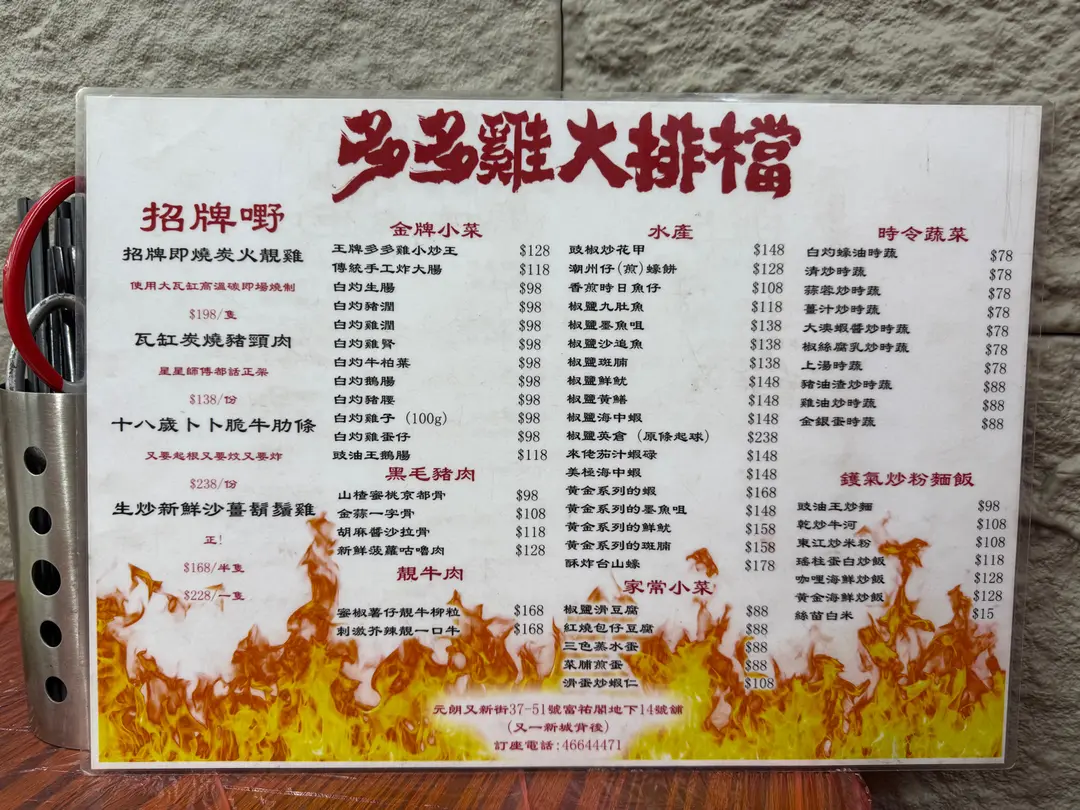 多多雞大排檔
招牌嘢
招牌即燒炭火靚雞
使用大瓦缸高溫碳即場燒制
$198/隻
瓦缸炭燒豬頸肉
星星師傅都話正架
$138/份
十八歲卜卜脆牛肋條
又要起根又要炆又要炸
$238/份
生炒新鮮沙薑鬍鬚雞
正!
$168/半隻
$228/一隻
金牌小菜
王牌多多雞小炒王 $128
傳統手工炸大腸 $118
白灼生腸 $98
白灼豬潤 $98
白灼雞潤 $98
白灼雞腎 $98
白灼牛柏葉 $98
白灼鵝腸 $98
白灼豬腰 $98
白灼雞子 (100g) $98
白灼雞蛋仔 $98
豉油王鵝腸 $118
黑毛豬肉
山楂蜜桃京都骨 $98
金蒜一字骨 $108
胡麻醬沙拉骨 $118
新鮮菠蘿咕嚕肉 $128
靚牛肉
蜜椒薯仔靚牛柳粒 $168
刺激芥辣靚一口牛 $168
水產
豉椒炒花甲 $148
潮州仔(煎)蠔餅 $128
香煎時日魚仔 $108
椒鹽九肚魚 $118
椒鹽墨魚咀 $138
椒鹽沙追魚 $138
椒鹽斑腩 $138
椒鹽鮮魷 $148
椒鹽黃鱔 $148
椒鹽海中蝦 $148
椒鹽英倉 (原條起球) $238
來佬茄汁蝦碌 $148
美極海中蝦 $148
黃金系列的蝦 $168
黃金系列的墨魚咀 $148
黃金系列的鮮魷 $158
黃金系列的斑腩 $158
酥炸台山蠔 $178
家常小菜
椒鹽滑豆腐 $88
紅燒包仔豆腐 $88
三色蒸水蛋 $88
菜脯煎蛋 $88
滑蛋炒蝦仁 $108
時令蔬菜
白灼蠔油時蔬 $78
清炒時蔬 $78
蒜蓉炒時蔬 $78
薑汁炒時蔬 $78
大澳蝦醬炒時蔬 $78
椒絲腐乳炒時蔬 $78
上湯時蔬 $78
豬油渣炒時蔬 $88
雞油炒時蔬 $88
金銀蛋時蔬 $88
鑊氣炒粉麵飯
豉油王炒麵 $98
乾炒牛河 $108
東江炒米粉 $108
瑤柱蛋白炒飯 $118
咖哩海鮮炒飯 $128
黃金海鮮炒飯 $128
絲苗白米 $15
元朗又新街37-51號富祐閣地下14號舖
(又一新城背後)
訂座電話:46644471